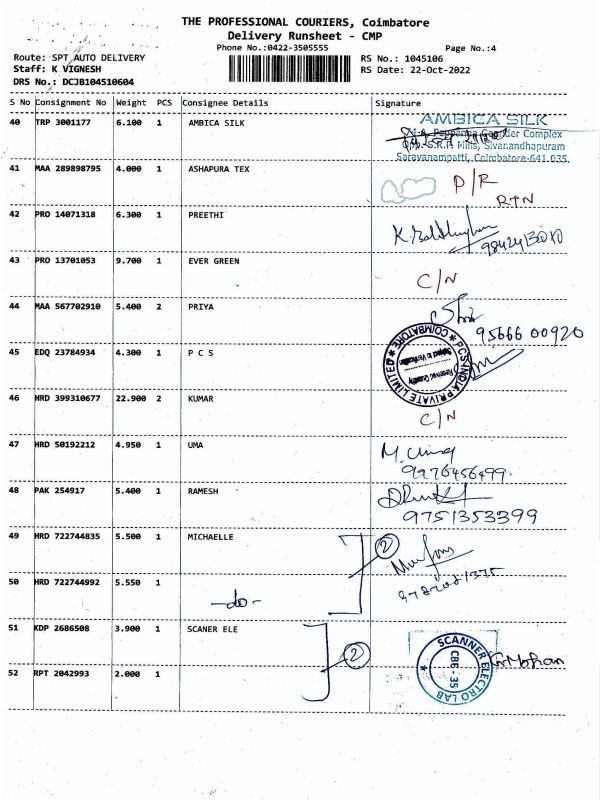 THE PROFESSIONAL COURIERS, Coimbatore
Delivery Runsheet - CMP
Phone No.:0422-3505555 Page No.:4
Route: SPT AUTO DELIVERY RS No.: 1045106
Staff: K VIGNESH RS Date: 22-Oct-2022
DRS No.: DCJB104510604
S No Consignment No Weight PCS Consignee Details Signature
40 TRP 3001177 6.100 1 AMBICA SILK AMBICA SILK
Complex
Opp. S.R.P. Mills, Sivanandhapuram
Saravanampatti, Coimbatore-641 035
41 MAA 289898795 4.000 1 ASHAPURA TEX D/R
RTN
42 PRO 14071318 6.300 1 PREETHI
43 PRO 13701053 9.700 1 EVER GREEN C/N
44 MAA 567702910 5.400 2 PRIYA
95666 00920
45 EDQ 23784934 4.300 1 P C S PCS INDIA PRIVATE LIMITED COIMBATORE
46 HRD 399310677 22.900 2 KUMAR C/N
47 HRD 50192212 4.950 1 UMA M. Uma
9276456499
48 PAK 254917 5.400 1 RAMESH
9751353399
49 HRD 722744835 5.500 1 MICHAELLE 2
50 HRD 722744992 5.550 1 -do-
51 KDP 2686508 3.900 1 SCANER ELE 2 SCANNER ELECTRO LAB
CBE - 35
52 RPT 2042993 2.000 1